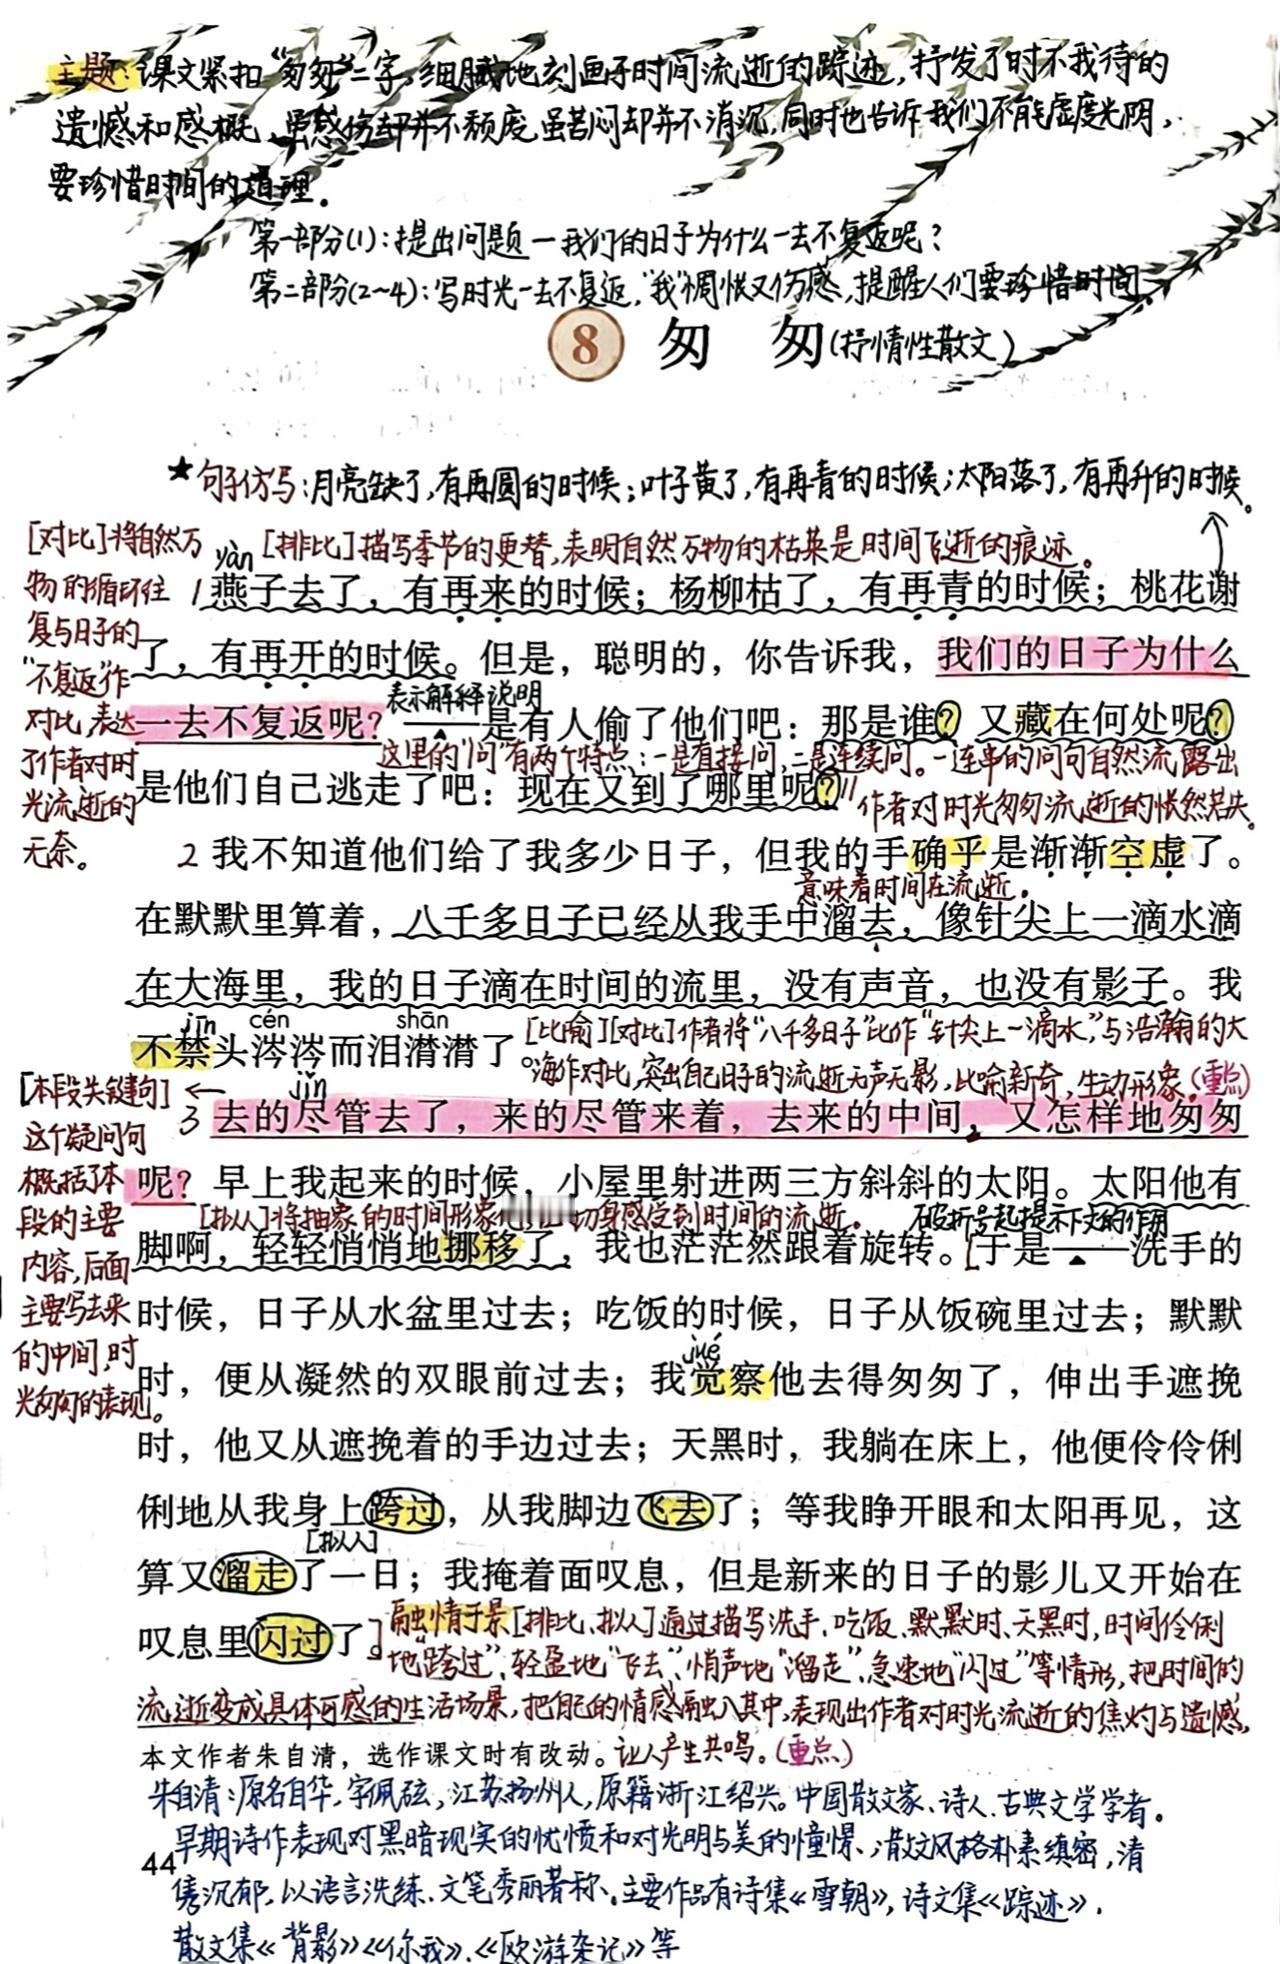 主题:课文紧扣“匆匆”二字,细腻地刻画了时间流逝的踪迹,抒发了时不我待的
遗憾和感概,虽感伤却并不颓废,虽苦闷却并不消沉,同时也告诉我们不能虚度光阴,
要珍惜时间的道理.
第一部分(1):提出问题—我们的日子为什么一去不复返呢?
第二部分(2~4):写时光一去不复返,“我”惆怅又伤感,提醒人们要珍惜时间.
8 匆 匆(抒情性散文)
★句子仿写:月亮缺了,有再圆的时候;叶子黄了,有再青的时候;太阳落了,有再升的时候。
[对比]将自然万
物的循环往
复与日子的
“不复返”作
对比,表达
了作者对时
光流逝的
无奈。
yàn [排比]描写季节的更替,表明自然万物的枯荣是时间飞逝的痕迹。
1 燕子去了,有再来的时候;杨柳枯了,有再青的时候;桃花谢
了,有再开的时候。但是,聪明的,你告诉我,我们的日子为什么
表示解释说明
一去不复返呢?——是有人偷了他们吧:那是谁?又藏在何处呢?
这里的“问”有两个特点:一是直接问,二是连续问。一连串的问句自然流露出
是他们自己逃走了吧:现在又到了哪里呢?//
作者对时光匆匆流逝的怅然若失。
2 我不知道他们给了我多少日子,但我的手确乎是渐渐空虚了。
意味着时间在流逝.
在默默里算着,八千多日子已经从我手中溜去,像针尖上一滴水滴
在大海里,我的日子滴在时间的流里,没有声音,也没有影子。我
jīn cén shān
不禁头涔涔而泪潸潸了。
[比喻][对比]作者将“八千多日子”比作“针尖上一滴水”与浩瀚的大
海作对比,突出自己日子的流逝无声无影,比喻新奇,生动形象.(重点)
[本段关键句]←
这个疑问句
概括了本
段的主要
内容,后面
主要写去来
的中间,时
光匆匆的表现。
jǐn
3 去的尽管去了,来的尽管来着,去来的中间,又怎样地匆匆
呢?早上我起来的时候,小屋里射进两三方斜斜的太阳。太阳他有
[拟人]将抽象的时间形象 切身感受到时间的流逝。
破折号起提示下文的作用
脚啊,轻轻悄悄地挪移了,我也茫茫然跟着旋转。[于是——洗手的
时候,日子从水盆里过去;吃饭的时候,日子从饭碗里过去;默默
jué
时,便从凝然的双眼前过去;我觉察他去得匆匆了,伸出手遮挽
时,他又从遮挽着的手边过去;天黑时,我躺在床上,他便伶伶俐
俐地从我身上跨过,从我脚边飞去了;等我睁开眼和太阳再见,这
[拟人]
算又溜走了一日;我掩着面叹息,但是新来的日子的影儿又开始在
叹息里闪过了。]
融情于景[排比、拟人]通过描写洗手、吃饭、默默时、天黑时,时间伶俐
地“跨过”、轻盈地“飞去”、悄声地“溜走”、急速地“闪过”等情形,把时间的
流逝变成具体可感的生活场景,把自己的情感融入其中,表现出作者对时光流逝的焦灼与遗憾,
本文作者朱自清,选作课文时有改动。让人产生共鸣。(重点)
朱自清:原名自华,字佩弦,江苏扬州人,原籍浙江绍兴。中国散文家、诗人、古典文学学者。
早期诗作表现对黑暗现实的忧愤和对光明与美的憧憬、;散文风格朴素缜密,清
44
隽沉郁,以语言洗练、文笔秀丽著称、。主要作品有诗集《雪朝》,诗文集《踪迹》.
散文集《背影》《你我》.《欧游杂记》等